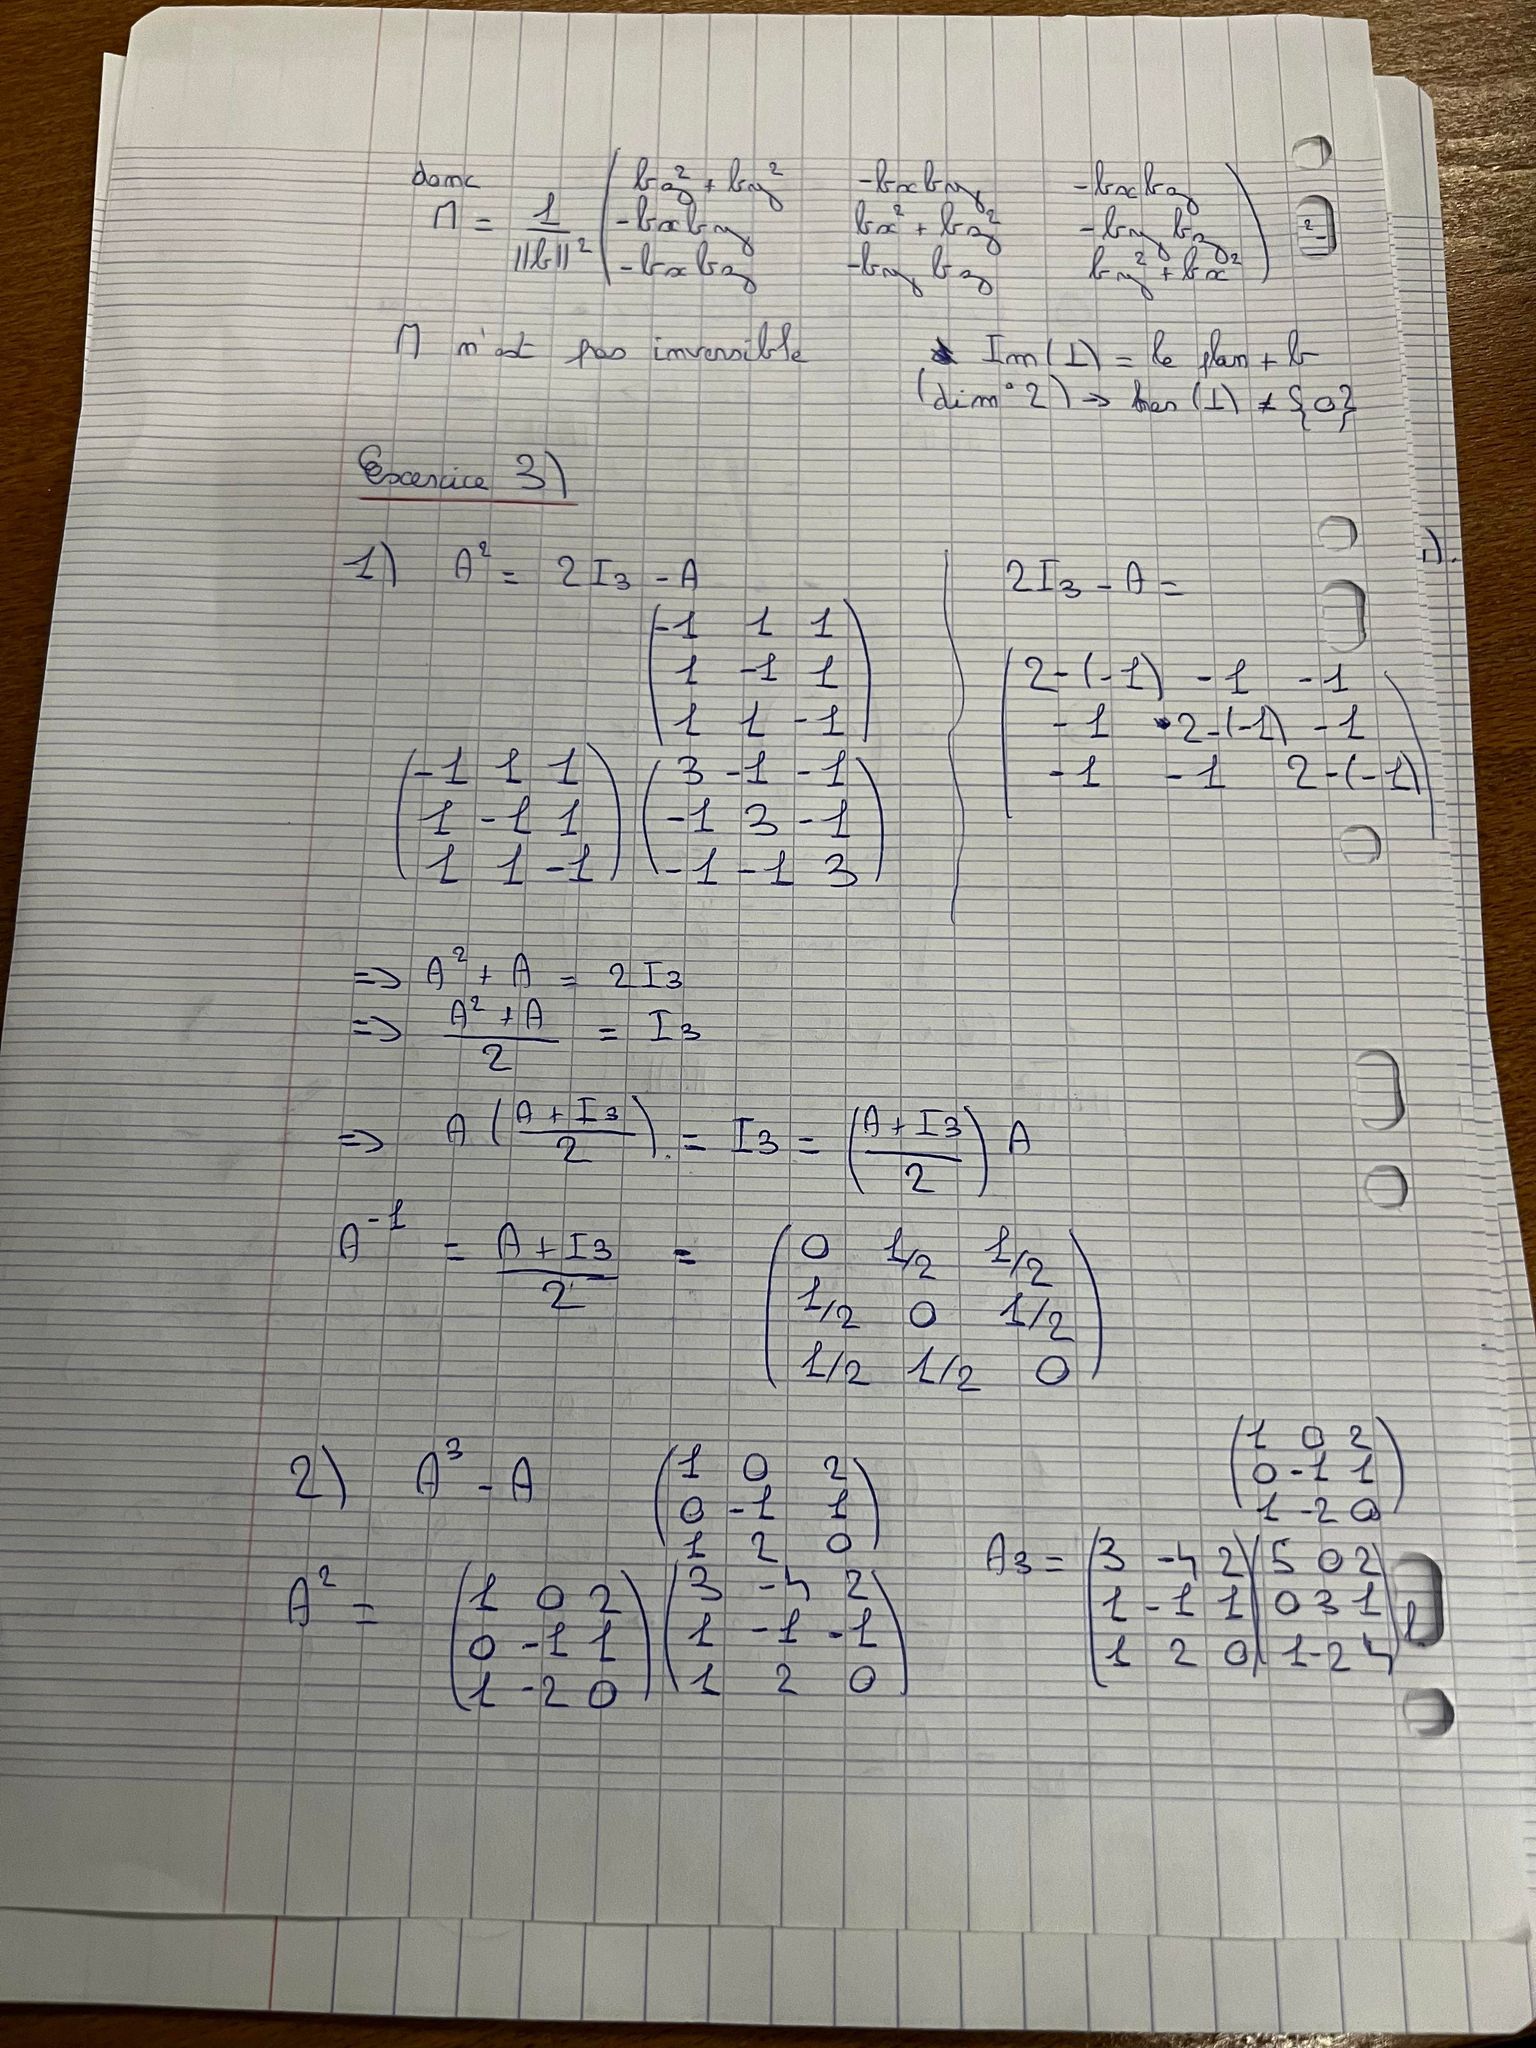 donc
M = 1/||b||² ( bz² + by²  -bxby  -bxbz
-bxby  bx² + bz²  -by bz
-bxbz  -by bz  by² + bx² )
M n'est pas inversible
* Im(I) = le plan ⊥ b
(dim° 2) => ker(I) ≠ {0}
Exercice 3)
1) A² = 2I3 - A
( -1 1 1
1 -1 1
1 1 -1 )
( -1 1 1
1 -1 1
1 1 -1 )
( 3 -1 -1
-1 3 -1
-1 -1 3 )
2I3 - A =
( 2-(-1) -1 -1
-1 2-(-1) -1
-1 -1 2-(-1) )
=> A² + A = 2I3
=> (A² + A)/2 = I3
=> A ((A + I3)/2) = I3 = ((A + I3)/2) A
A⁻¹ = (A + I3)/2 = ( 0 1/2 1/2
1/2 0 1/2
1/2 1/2 0 )
2) A³ - A
( 1 0 2
0 -1 1
1 2 0 )
A² = ( 1 0 2
0 -1 1
1 -2 0 )
( 3 -4 2
1 -1 -1
1 2 0 )
( 1 0 2
0 -1 1
1 -2 0 )
A3 = ( 3 -4 2
1 -1 1
1 2 0 )
( 5 0 2
0 3 1
1 -2 4 )